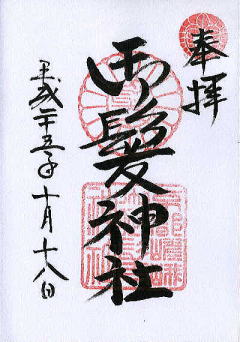 奉拝
御髪神社
平成二十五年十月十八日